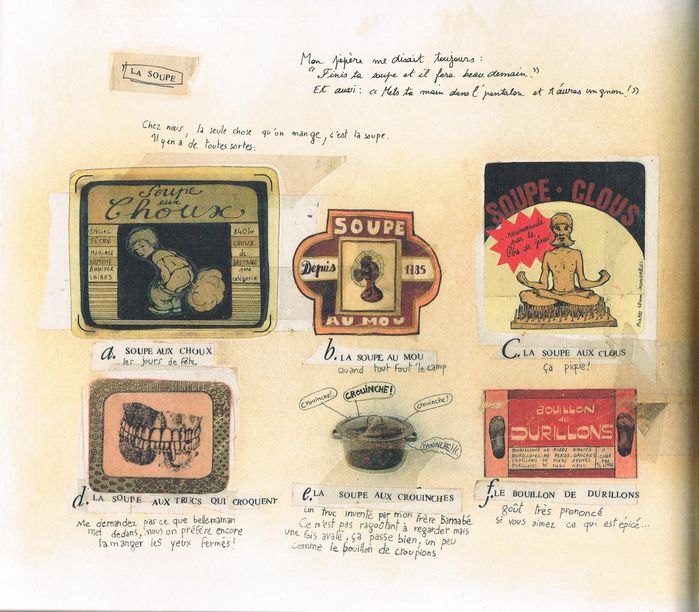 LA SOUPE
Mon pépère me disait toujours :
"Finis ta soupe et il fera beau demain."
Et aussi : "Mets ta main dans l'pantalon et t'auras un gnon !"
Chez nous, la seule chose qu'on mange, c'est la soupe.
Il y en a de toutes sortes :
Soupe
aux
Choux
SPÉCIAL
FÊTES
MARIAGE
BAPTÊME
ANNIVER
SAIRES
840Gr
CHOUX
DE
BRETAGNE
1ère
catégorie
SOUPE
Depuis 1785
AU MOU
SOUPE · CLOUS
recommandé
par le
a. SOUPE AUX CHOUX
les jours de fête
b. LA SOUPE AU MOU
quand tout fout le camp
C. LA SOUPE AUX CLOUS
ça pique !
Crouinche !
CROUINCHE !
Crouinche !
CROUINCHE !!
BOUILLON
de
DURILLONS
DURILLONS DE PIEDS DROITS
DURILLONS DE PIEDS GAUCHES
DURILLONS DE PIEDS JEUNES
DURILLONS DE PIEDS VIEUX
1 CUBE
PAR
½ LITRE
d. LA SOUPE AUX TRUCS QUI CROQUENT
Me demandez pas ce que bellemaman
met dedans, nous on préfère encore
la manger les yeux fermés !
e. LA SOUPE AUX CROUINCHES
un truc inventé par mon frère Barnabé
Ce n'est pas ragoûtant à regarder mais
une fois avalé, ça passe bien, un peu
comme le bouillon de croupions
f. LE BOUILLON DE DURILLONS
goût très prononcé
si vous aimez ce qui est épicé...